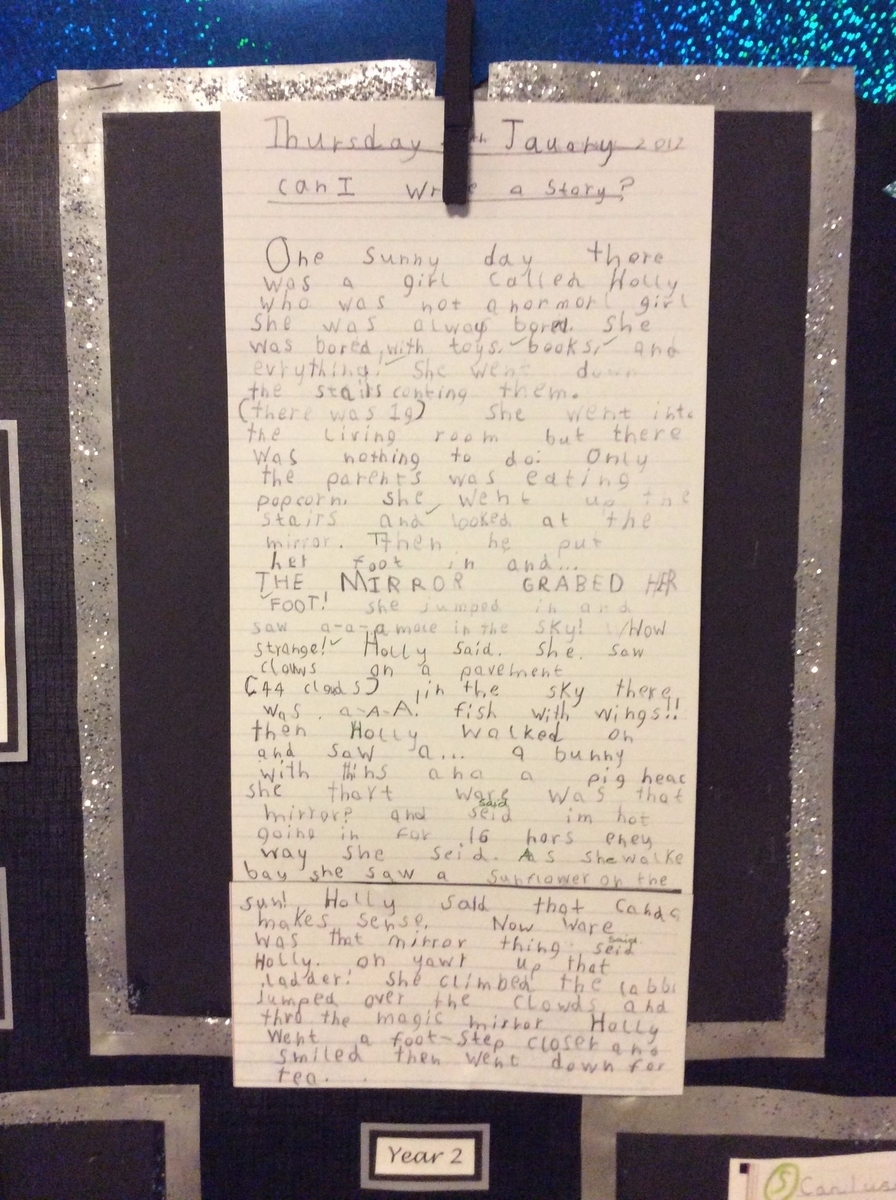 Thursday th Jauary 2012
can I a story?
One sunny day there
was a girl called Holly
who was not a normorl girl
she was alway bored. She
was bored, with toys, books, and
evrything! She went down
the stairs conting them.
(there was 19) She went into
the Living room but there
was nothing to do. Only
the parents was eating
popcorn. she went up the
stairs and looked at the
mirror. Then he put
her foot in and...
THE MIRROR GRABED HER
FOOT! she jumped in and
saw a-a-a mole in the sky! How
strange! Holly said. She saw
clouws on a pavement
(44 clouds) in the sky there
was a-A-A! fish with wings!!
then Holly walked on
and saw a... a bunny
with and a pig head
she thort ware was that
said
mirror? and seid im not
going in for 16 hors eney
way she seid. As she walke
bay she saw a sunflower on the
sun! Holly said that
makes sense. Now ware
said
was that mirror thing seid
Holly. oh up that
ladder! She climbed the
jumped over the clowds and
thro the magic mirror Holly
went a foot-step closer and
smiled then went down for
tea.
Year 2
S